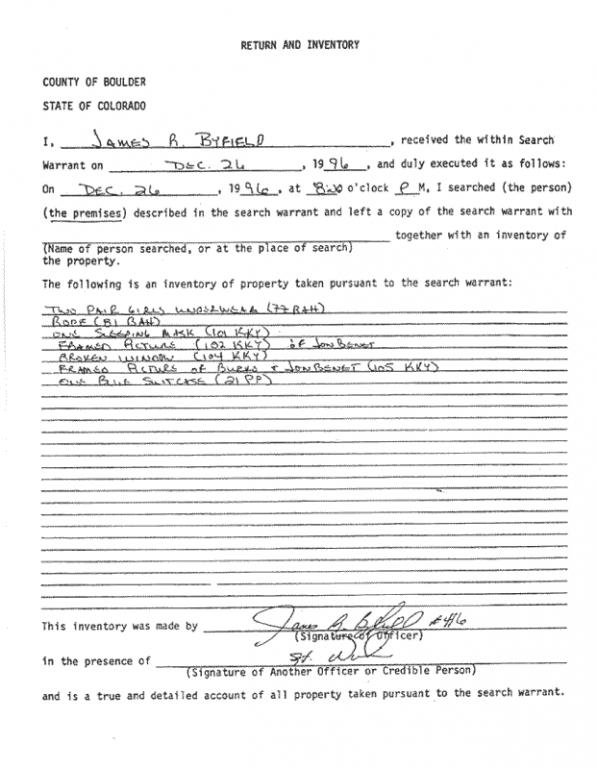 RETURN AND INVENTORY
COUNTY OF BOULDER
STATE OF COLORADO
I, JAMES R. BYFIELD, received the within Search
Warrant on DEC. 26, 1996, and duly executed it as follows:
On DEC. 26, 1996, at 8:20 o'clock P M, I searched (the person)
(the premises) described in the search warrant and left a copy of the search warrant with
together with an inventory of
(Name of person searched, or at the place of search)
the property.
The following is an inventory of property taken pursuant to the search warrant:
TWO PAIR GIRLS UNDERWEAR (77 RAH)
ROPE (81 RAH)
ONE SLEEPING MASK (101 KKY)
FRAMED PICTURE (102 KKY) OF JONBENET
BROKEN WINDOW (104 KKY)
FRAMED PICTURE OF BURKE + JONBENET (105 KKY)
ONE BLUE SUITCASE (21 PP)
This inventory was made by James R. Byfield #416
(Signature of Officer)
in the presence of Sgt.
(Signature of Another Officer or Credible Person)
and is a true and detailed account of all property taken pursuant to the search warrant.